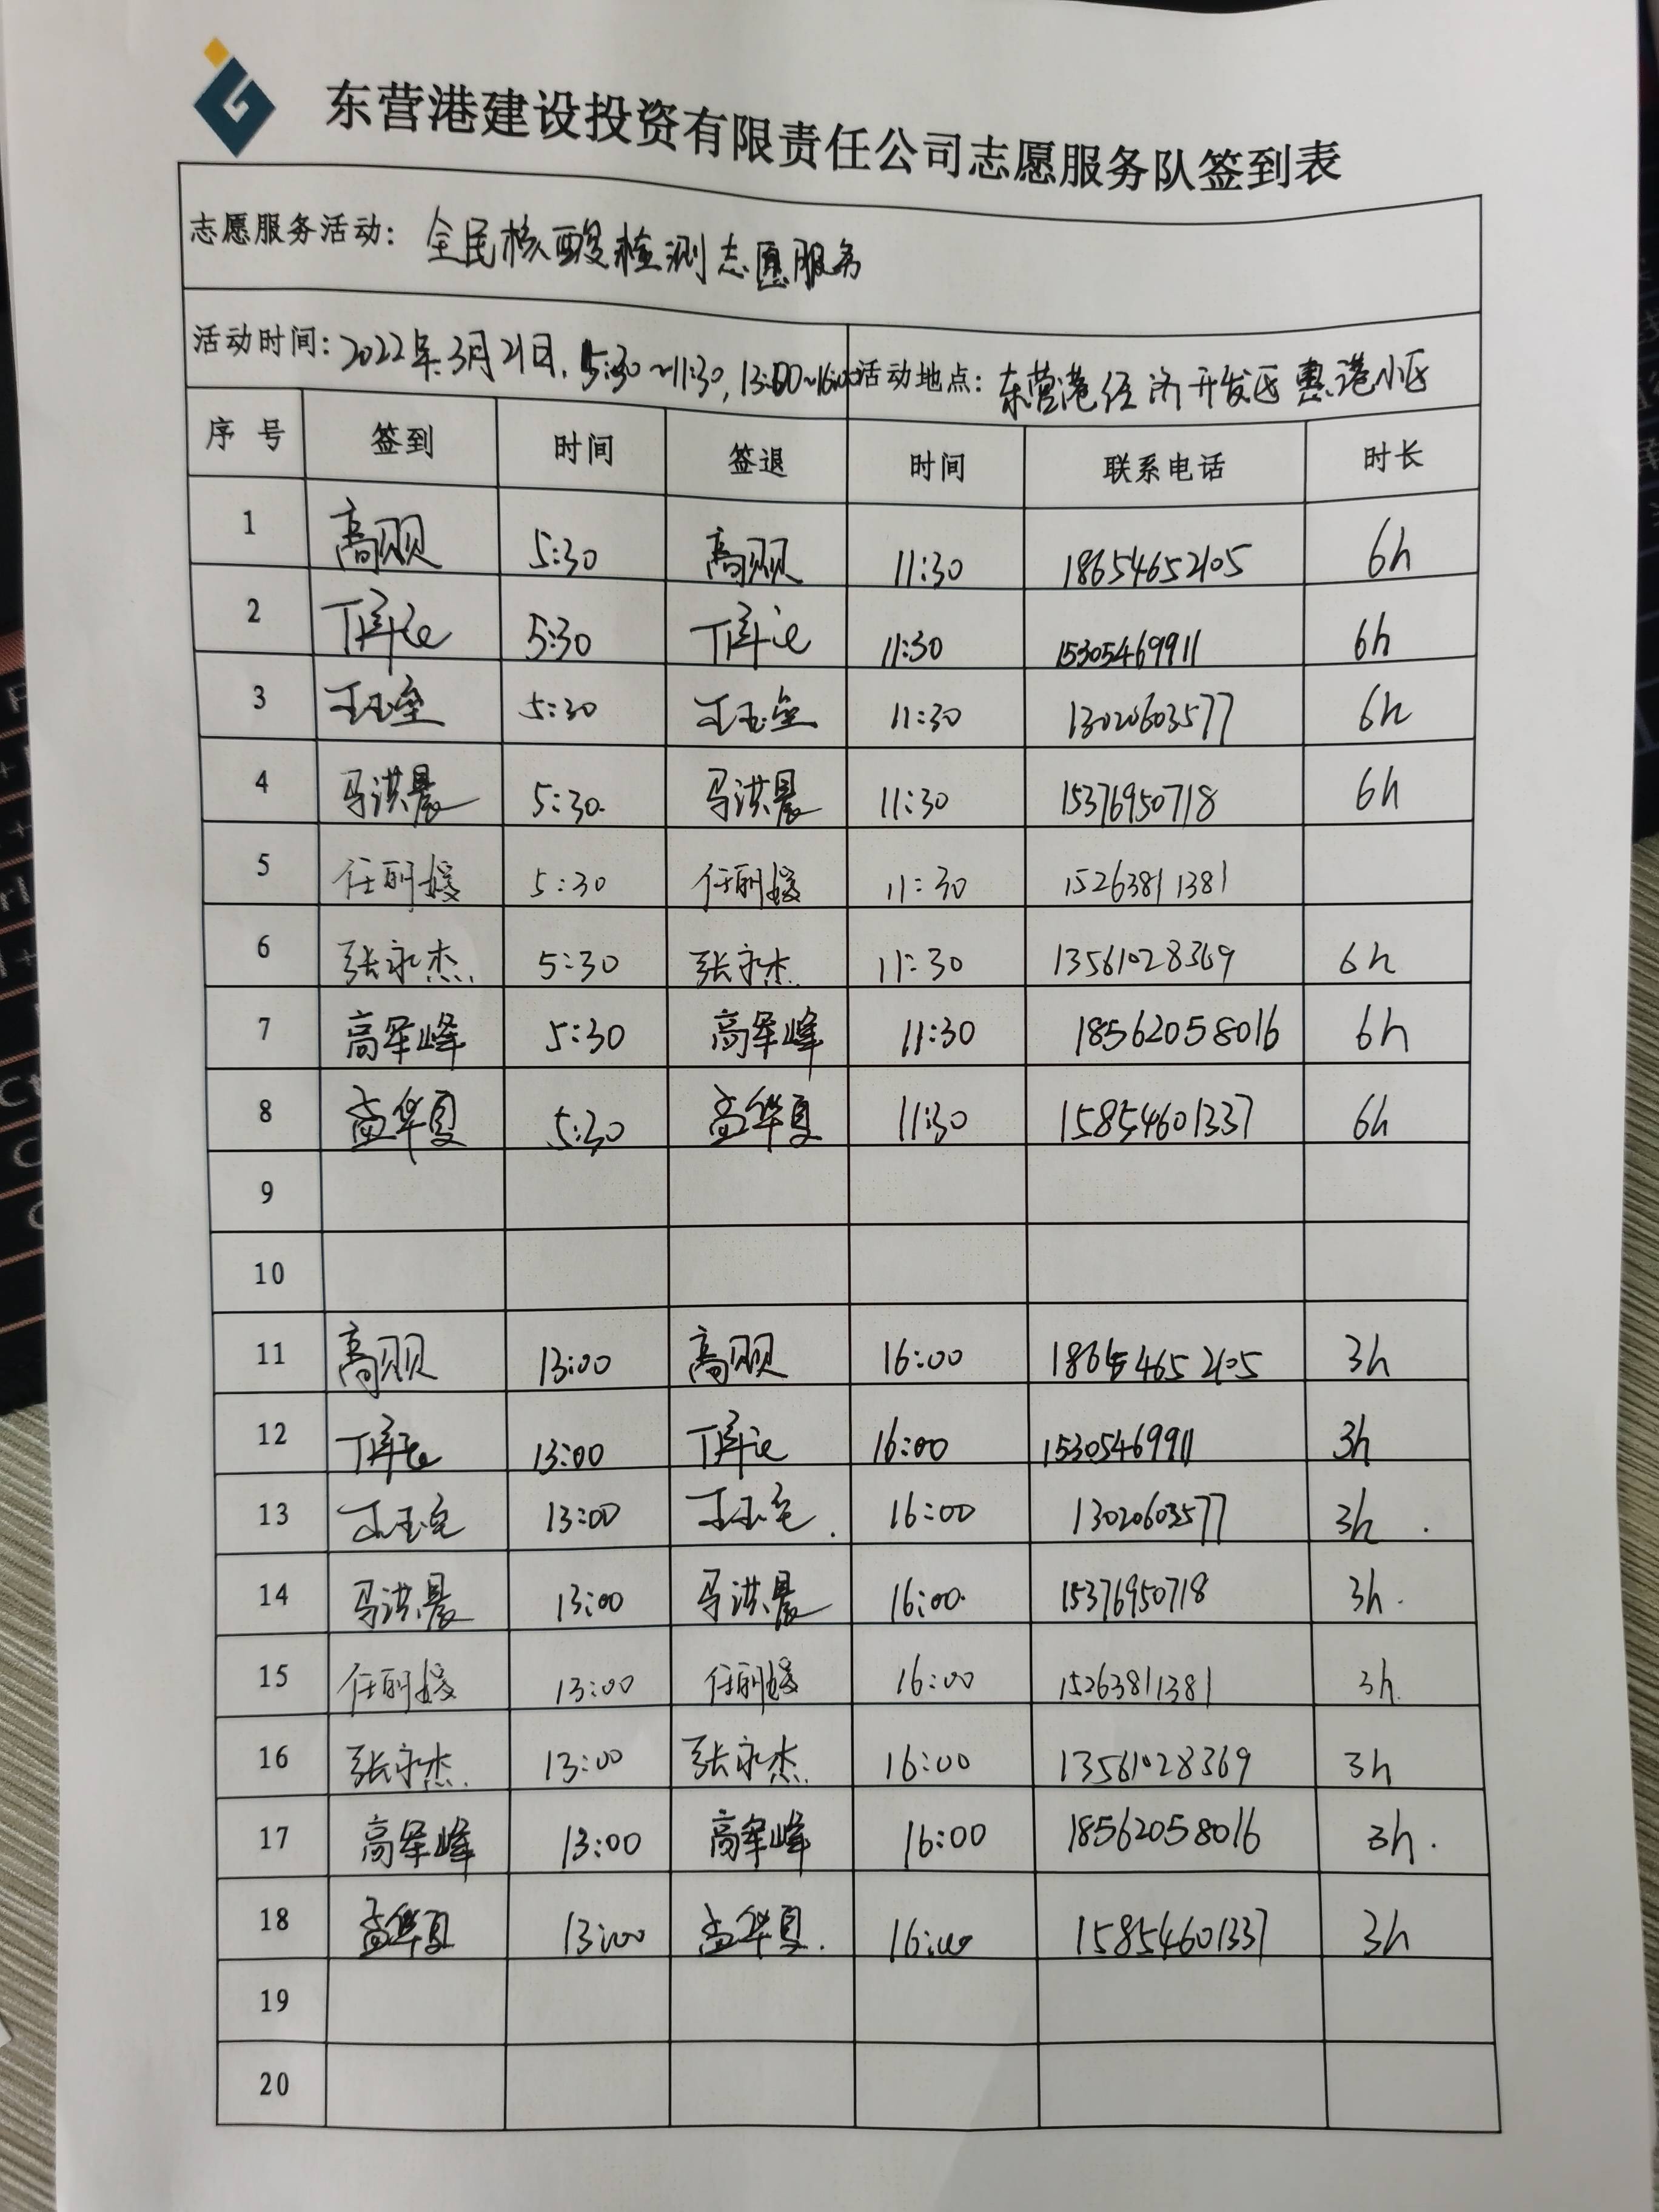 东营港建设投资有限责任公司志愿服务队签到表
志愿服务活动：全民核酸检测志愿服务
活动时间：2022年3月21日，5:30~11:30，13:00~16:00 活动地点：东营港经济开发区惠港小区
序号 签到 时间 签退 时间 联系电话 时长
1 高 5:30 高 11:30 18654652105 6h
2 5:30 11:30 15305469911 6h
3 王玉 5:30 王玉 11:30 13020603577 6h
4 马洪晨 5:30 马洪晨 11:30 15376950718 6h
5 任丽媛 5:30 任丽媛 11:30 15263811381
6 张永杰 5:30 张永杰 11:30 13561028369 6h
7 高军峰 5:30 高军峰 11:30 18562058016 6h
8 孟华夏 5:30 孟华夏 11:30 15854601337 6h
9
10
11 高 13:00 高 16:00 18654652105 3h
12 13:00 16:00 15305469911 3h
13 王玉 13:00 王玉 16:00 13020603577 3h
14 马洪晨 13:00 马洪晨 16:00 15376950718 3h
15 任丽媛 13:00 任丽媛 16:00 15263811381 3h
16 张永杰 13:00 张永杰 16:00 13561028369 3h
17 高军峰 13:00 高军峰 16:00 18562058016 3h
18 孟华夏 13:00 孟华夏 16:00 15854601337 3h
19
20